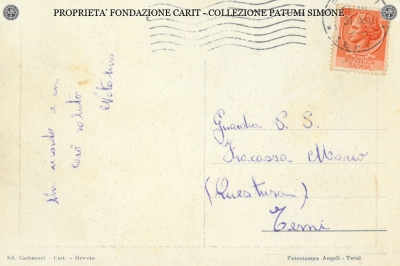 PROPRIETA' FONDAZIONE CARIT - COLLEZIONE PATUMI SIMONE
Un ricordo e un
caro saluto
Guardia P. S.
Fracassa Mario
(Questura)
Terni
Ed. Carbucci - Cart - Orvieto
Fotostampa Angeli - Terni